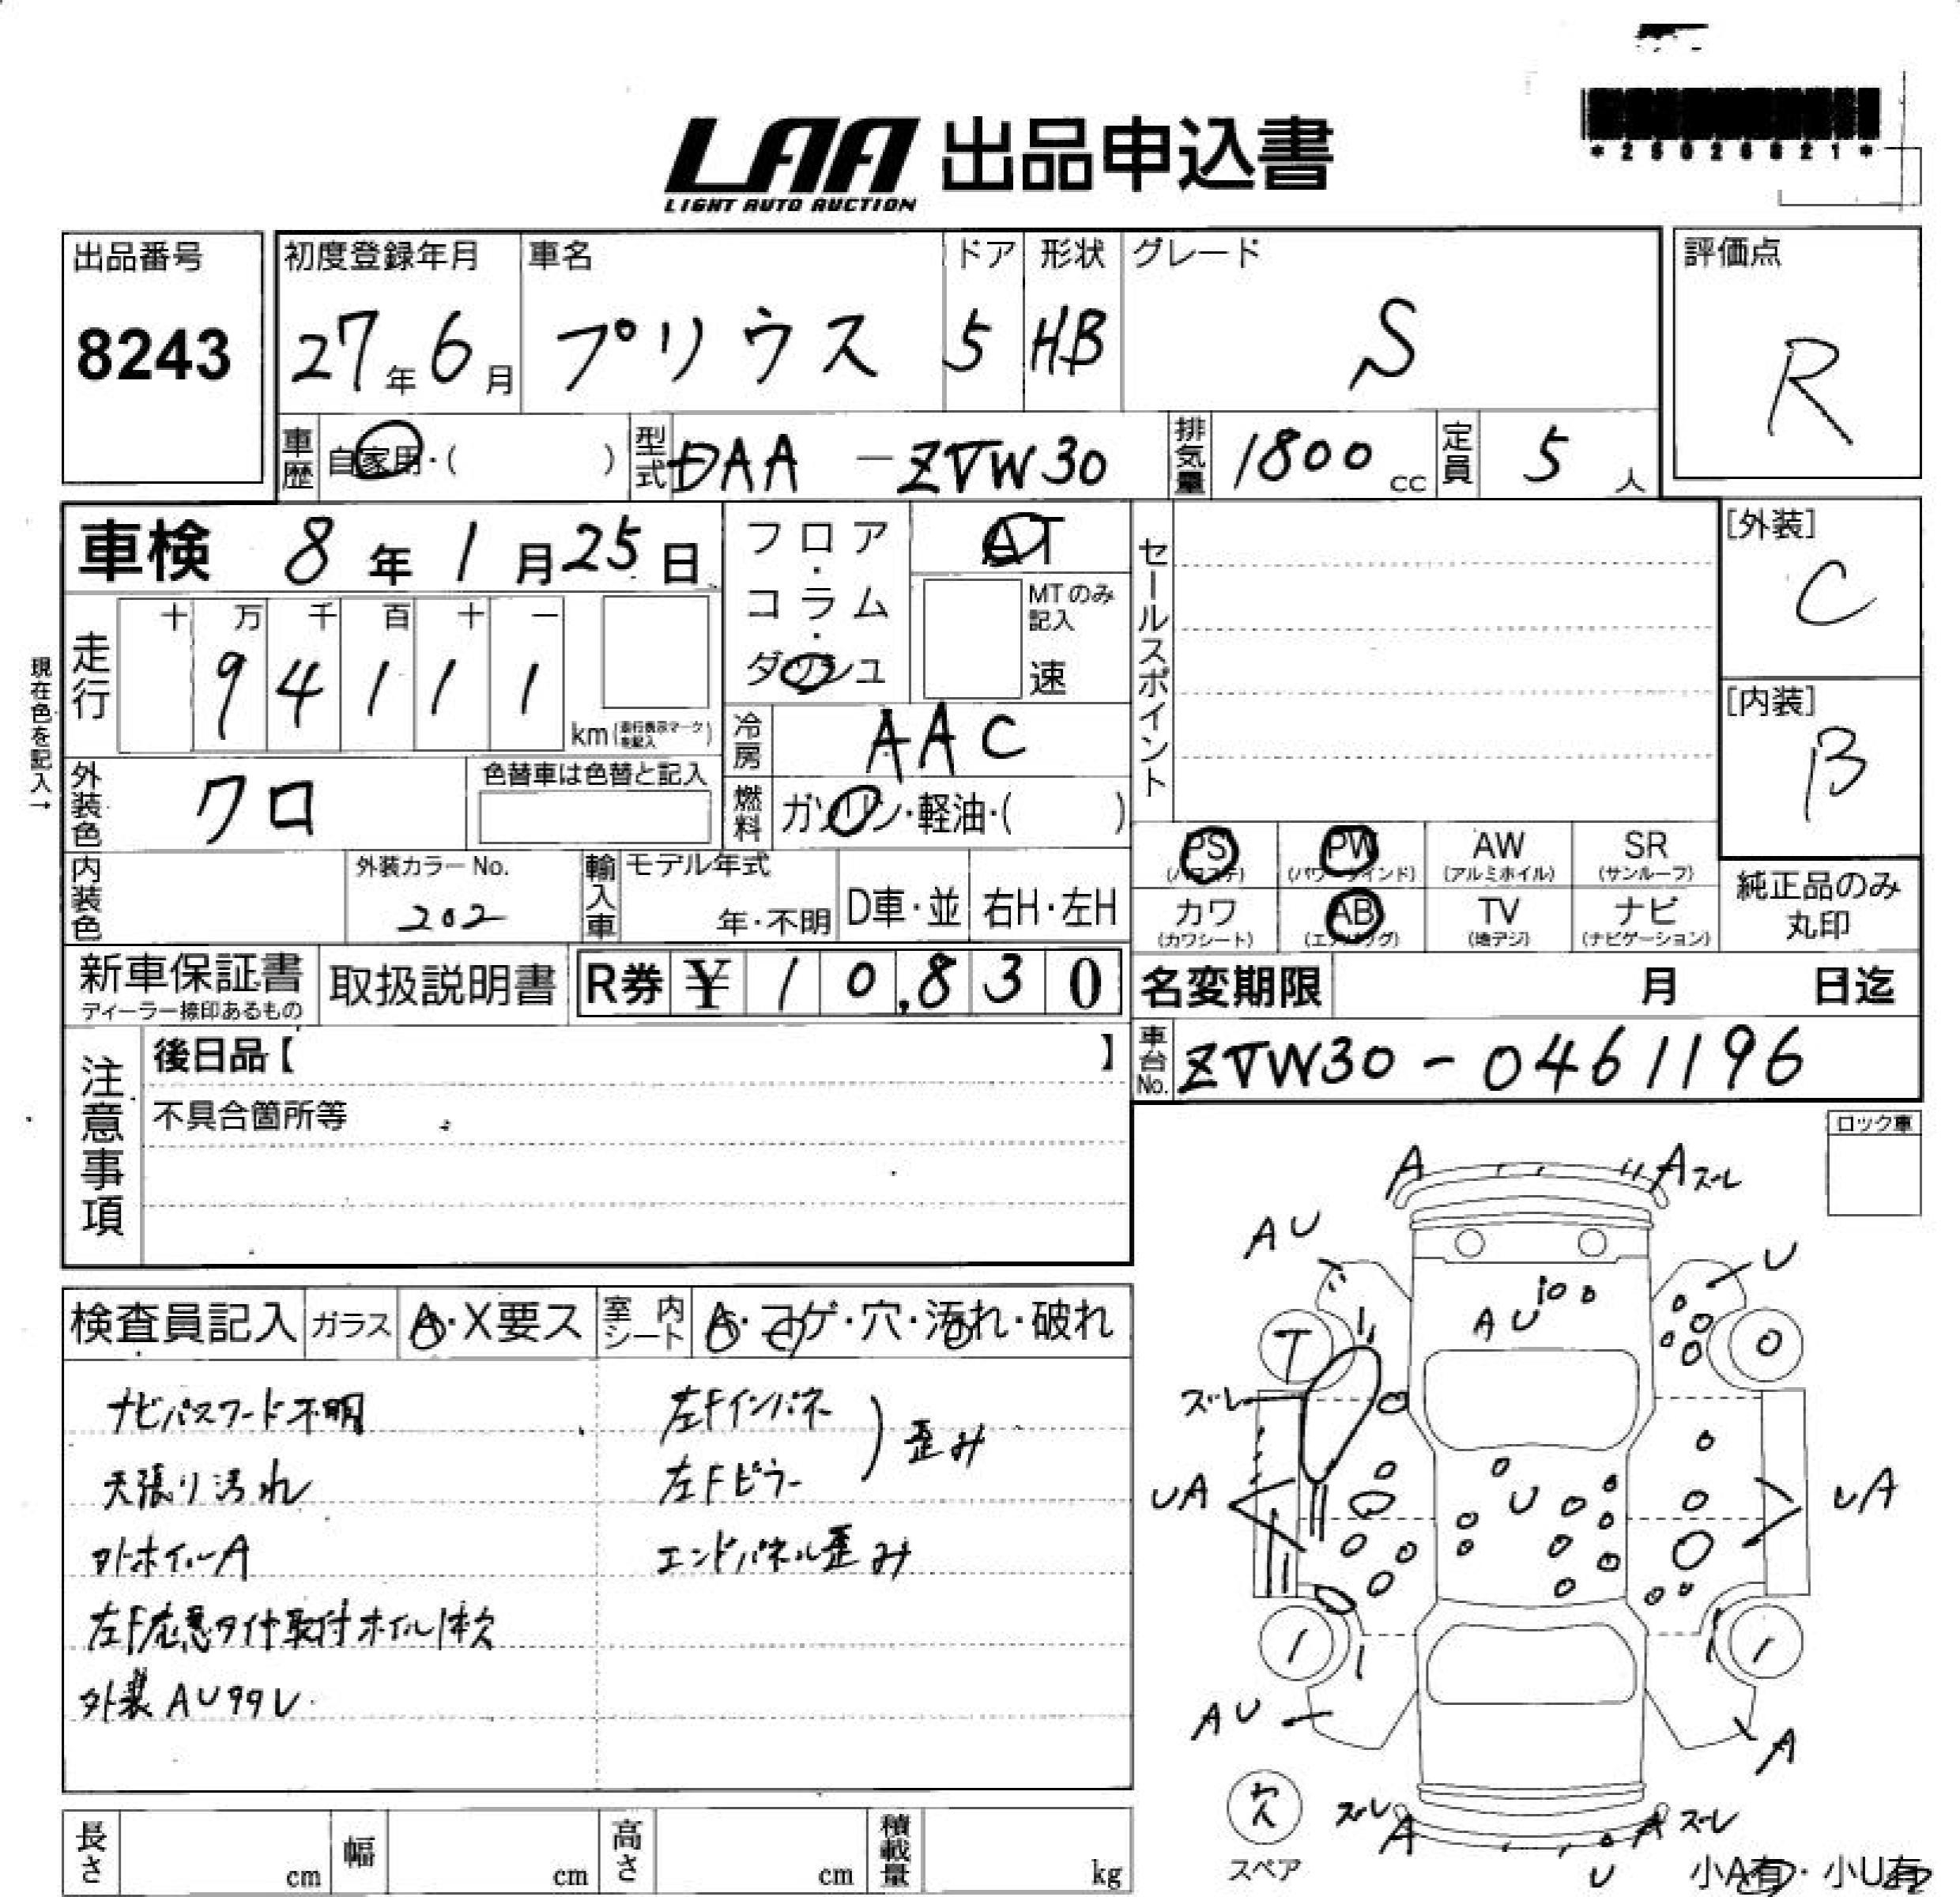 *25026821*
LAA 出品申込書
LIGHT AUTO AUCTION
出品番号
8243
初度登録年月
27年6月
車名
プリウス
ドア
5
形状
HB
グレード
S
評価点
R
車歴 自家用・( )
型式 DAA-ZVW30
排気量 1800cc
定員 5人
車検 8年1月25日
フロア・コラム・ダッシュ
AT
MTのみ記入
速
セールスポイント
[外装]
C
[内装]
B
現在色を記入→
走行
十 万 千 百 十 一
9 4 1 1 1
km (走行表示マークを記入)
冷房 AAC
外装色 クロ
色替車は色替と記入
燃料 ガソリン・軽油・( )
PS
(パワステ)
PW
(パワーウインド)
AW
(アルミホイル)
SR
(サンルーフ)
カワ
(カワシート)
AB
(エアバッグ)
TV
(地デジ)
ナビ
(ナビゲーション)
純正品のみ
丸印
内装色
外装カラーNo.
202
輸入車
モデル年式
年・不明
D車・並
右H・左H
新車保証書
ディーラー捺印あるもの
取扱説明書
R券 ¥ 1 0,8 3 0
名変期限 月 日迄
車台No. ZVW30-0461196
注意事項
後日品【 】
不具合箇所等
ロック車
検査員記入
ガラス A・X要ス
室内シート A・コゲ・穴・汚れ・破れ
ナビパスワード不明
天張り汚れ
外ホイルA
左F応急タイヤ取付ホイル1本欠
外装AUタタレ
左Fインパネ
左Fピラー
) 歪み
エンドパネル歪み
A
Aズレ
AU
U
AU
T
0
ズレ
UA
U
UA
1
1
AU
A
欠
スペア
ズレ
A
A ズレ
U
小A有・小U有
長さ cm
幅 cm
高さ cm
積載量 kg